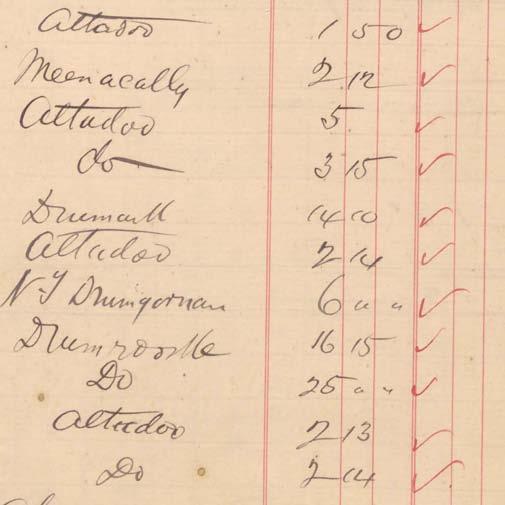 Altadoo 1 5 0
Meenacally 2 12
Altadoo 5
do 3 15
Drumark 14 10
Altadoo 2 14
N Y Drumgornan 6 " "
16 15
Do 25 " "
Altadoo 2 13
Do 2 14